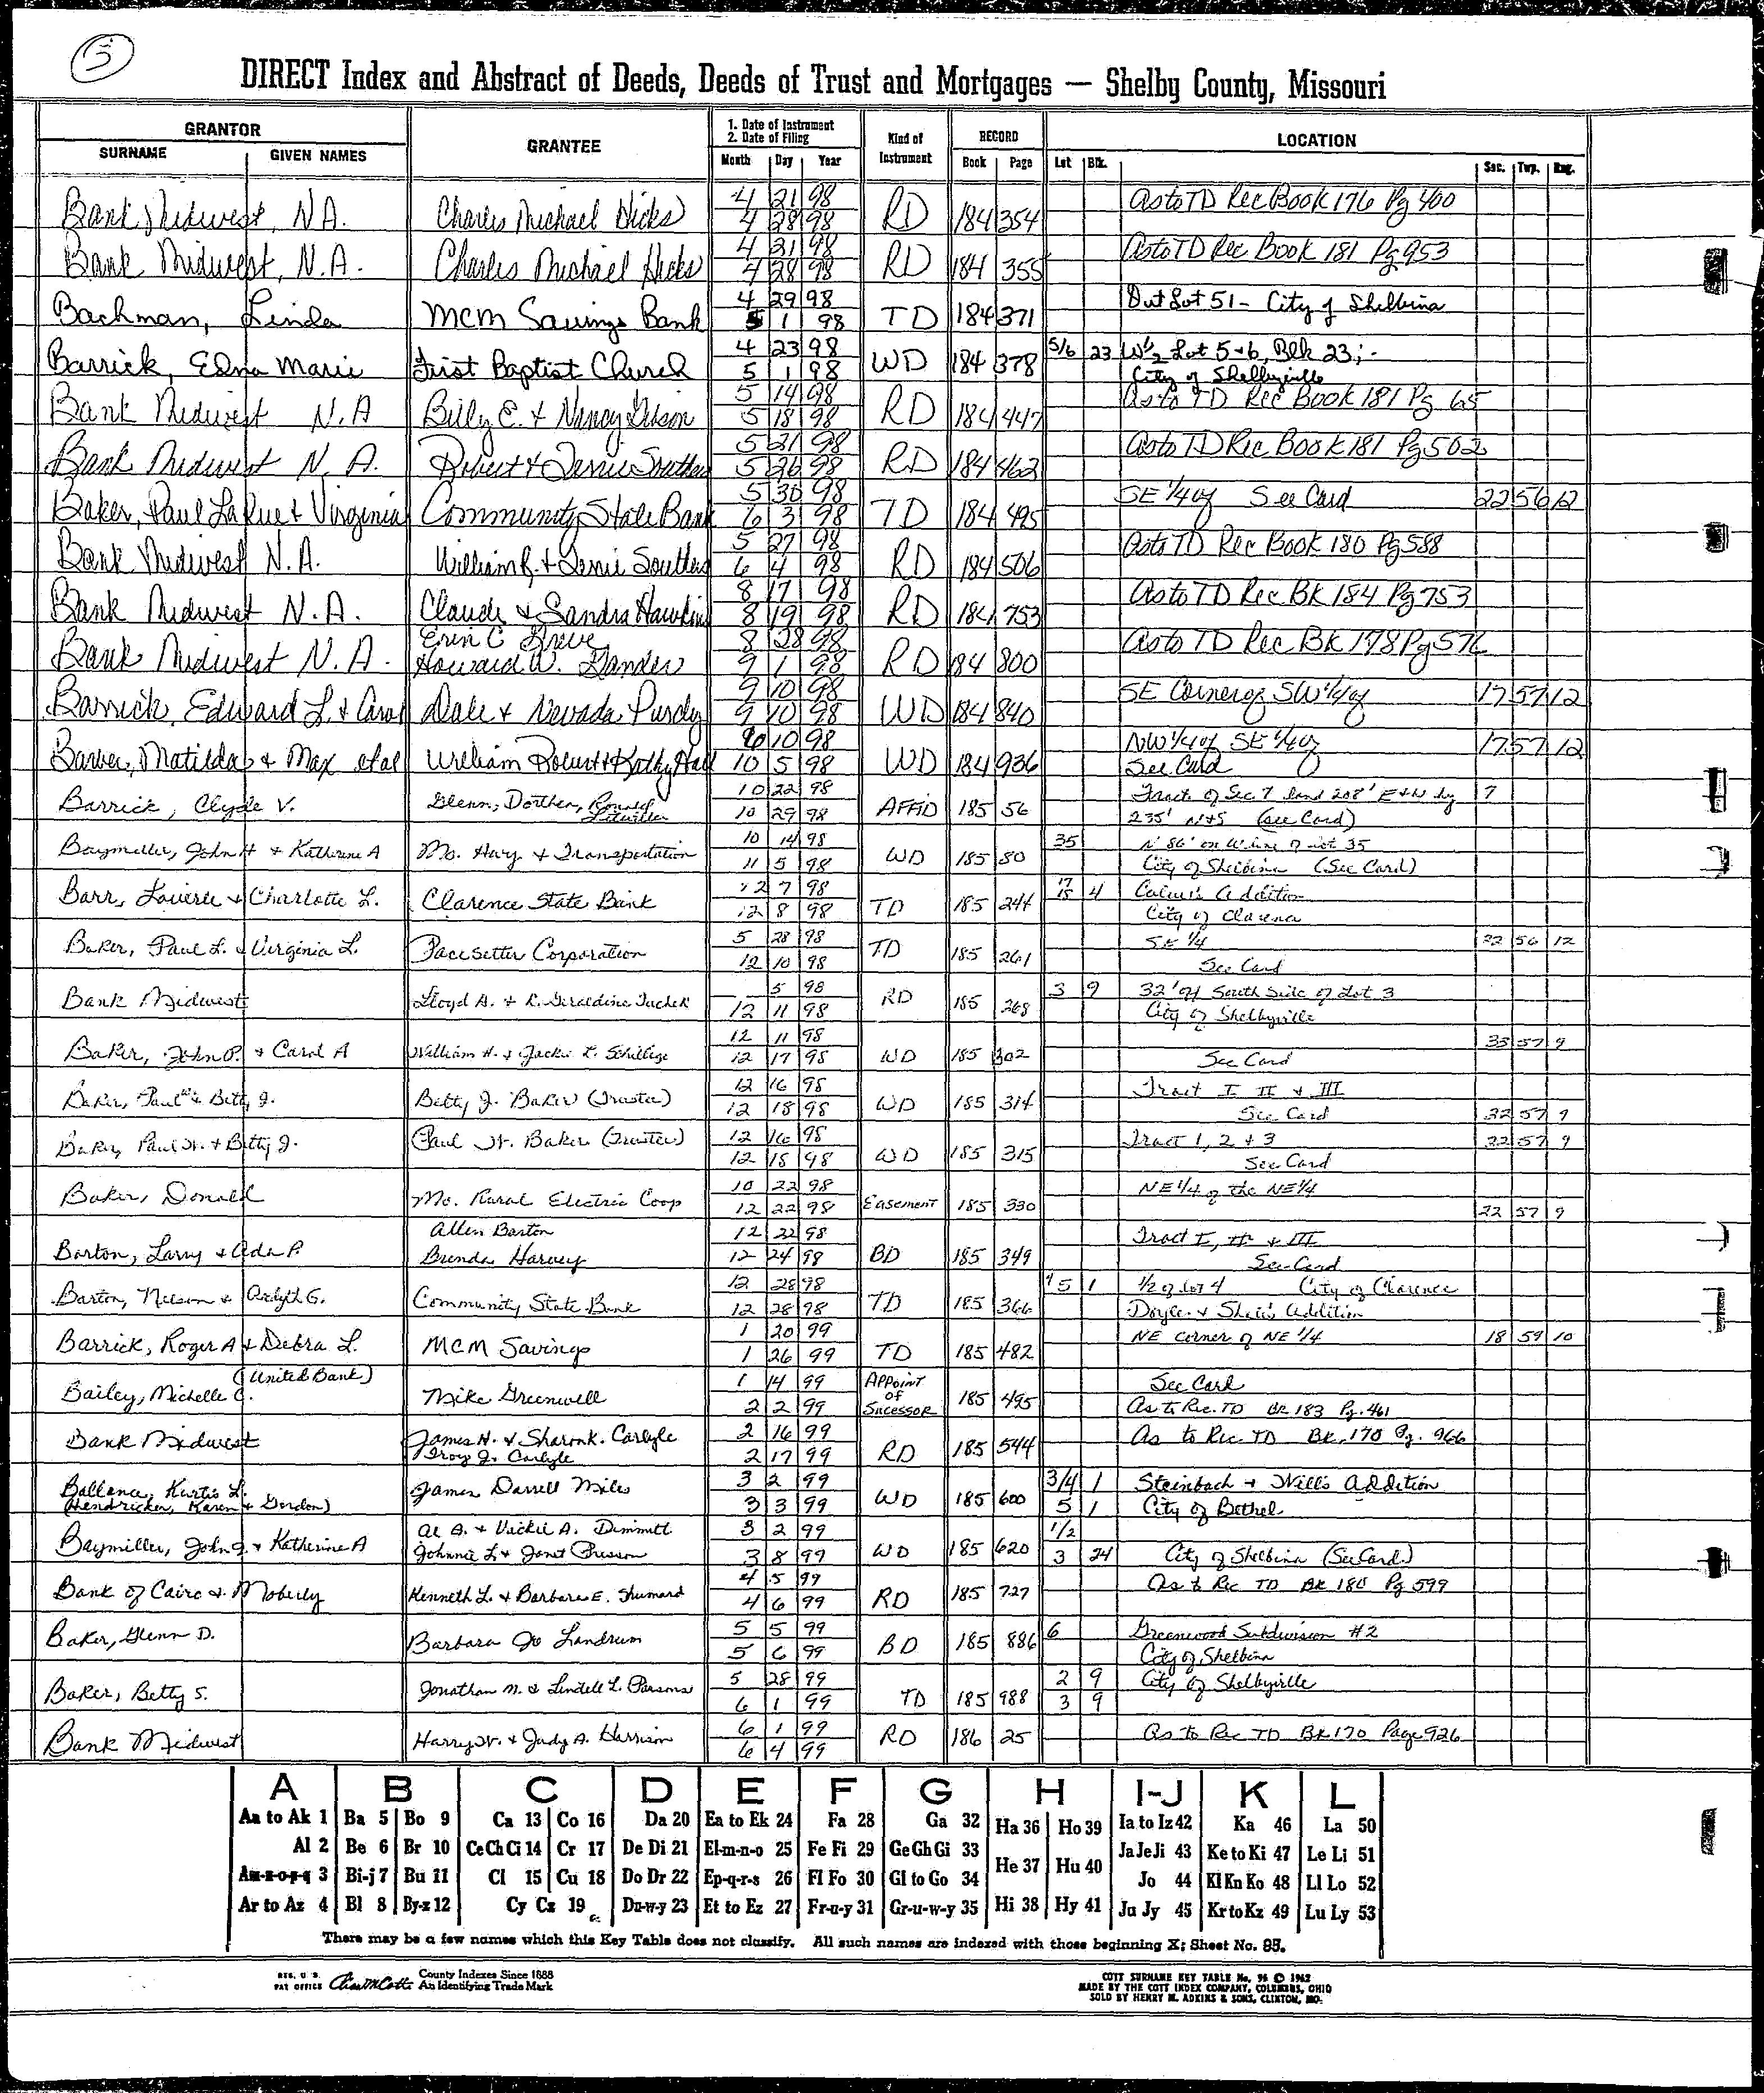 5
DIRECT Index and Abstract of Deeds, Deeds of Trust and Mortgages — Shelby County, Missouri
GRANTOR GRANTEE 1. Date of Instrument 2. Date of Filing Kind of Instrument RECORD LOCATION
SURNAME GIVEN NAMES Month Day Year Book Page Lot Blk. Sec. Twp. Rng.
Bank Midwest, N.A. Charles Michael Hicks 4 21 98 RD 184 354 As to TD Rec Book 176 Pg 400
4 28 98
Bank Midwest, N.A. Charles Michael Hicks 4 21 98 RD 184 355 As to TD Rec Book 181 Pg 953
4 28 98
Bachman, Linda MCM Savings Bank 4 29 98 TD 184 371 Out Lot 51 - City of Shelbina
5 1 98
Barrick, Edna Marie First Baptist Church 4 23 98 WD 184 378 5/6 23 W½ Lot 5+6, Blk 23;-
5 1 98 City of Shelbyville
Bank Midwest N.A Billy E. & Nancy 5 14 98 RD 184 447 As to TD Rec Book 181 Pg 65
5 18 98
Bank Midwest N.A. Robert & Southern 5 21 98 RD 184 462 As to TD Rec Book 181 Pg 502
5 26 98
Baker, Paul LaRue & Virginia Community State Bank 5 30 98 TD 184 495 SE ¼ of See Card 22 56 12
6 3 98
Bank Midwest N.A. William R. & 5 27 98 RD 184 506 As to TD Rec Book 180 Pg 588
6 4 98
Bank Midwest N.A. Claude & Sandra Hawkins 8 17 98 RD 184 753 As to TD Rec. Bk 184 Pg 753
8 19 98
Erin C Greve 8 28 98
Bank Midwest N.A. Howard W. Gander 9 1 98 RD 184 800 As to TD Rec Bk 178 Pg 576
Barrick, Edward L. & Carol Dale & Nevada Purdy 9 10 98 WD 184 840 SE Corner of SW ¼ of 17 57 12
9 10 98
Barber, Matilda & Max etal William Robert & Kathy Hall 10 98 WD 184 936 NW ¼ of SE ¼ of 17 57 12
10 5 98 See Card
Barrick, Clyde V. Glenn, Dorthea, Ronald 10 22 98 AFFID 185 56 Tract of Sec. 7 land 208' E+W by 7
10 29 98 235' N+S (See Card)
Baymiller, John H & Katherine A Mo. Hwy & Transportation 10 14 98 WD 185 80 35 N 86' on W line of Lot 35
11 5 98 City of Shelbina (See Card)
Barr, Laverle & Charlotte L. Clarence State Bank 12 7 98 TD 185 244 17 18 4 Addition
12 8 98 City of Clarence
Baker, Paul L. & Virginia L. Pacesetter Corporation 5 28 98 TD 185 261 SE ¼ 22 56 12
12 10 98 See Card
Bank Midwest Lloyd A. & R. Geraldine Tucker 5 98 RD 185 268 3 9 32' of South Side of Lot 3
12 11 98 City of Shelbyville
Baker, John P. & Carol A William H. & Jackie L. 12 11 98 WD 185 302 35 57 9
12 17 98 See Card
Baker, Paul W & Betty J. Betty J. Baker (Trustee) 12 16 98 WD 185 314 Tract I II & III
12 18 98 See Card 22 57 9
Baker, Paul W. & Betty J. Paul W. Baker (Trustee) 12 16 98 WD 185 315 Tract 1, 2 + 3 22 57 9
12 18 98 See Card
Baker, Donald Mo. Rural Electric Coop 10 22 98 Easement 185 330 NE ¼ of the NE ¼
12 22 98 22 57 9
Allen Barton 12 22 98 Tract I, II & III
Barton, Larry & Ada P. Brenda Harvey 12 24 98 BD 185 349 See Card
Barton, Nelson & Ardyth G. Community State Bank 12 28 98 TD 185 366 5 1 ½ of Lot 4 City of Clarence
12 28 98 Doyle & Addition
Barrick, Roger A & Debra L. MCM Savings 1 20 99 TD 185 482 NE corner of NE ¼ 18 59 10
1 26 99
(United Bank)
Bailey, Michelle C. Mike Greenwell 1 14 99 Appoint of Sucessor 185 495 See Card
2 2 99 As to Rec. TD BK 183 Pg. 461
Bank Midwest James H. & Sharon K. Carlyle 2 16 99 RD 185 544 As to Rec. TD Bk. 170 Pg. 966
Troy J. Carlyle 2 17 99
Ballance, Kurtis L. James Darrell Miles 3 2 99 WD 185 600 3/4 1 Steinbach & Will's Addition
(Hendricker, Karen & Gordon) 3 3 99 5 1 City of Bethel
Baymiller, John J. & Katherine A Al A. & Vickie A. Dimmitt 3 2 99 WD 185 620 1/2
Johnnie L & Janet Presson 3 8 99 3 24 City of Shelbina (See Card)
Bank of Cairo & Moberly Kenneth L. & Barbara E. Shumard 4 5 99 RD 185 727 As to Rec TD BK 180 Pg 599
4 6 99
Baker, Glenn D. Barbara Jo Landrum 5 5 99 BD 185 886 6 Greenwood Subdivision #2
5 6 99 City of Shelbina
Baker, Betty S. Jonathan M. & Lindell L. Parsons 5 28 99 TD 185 988 2 9 City of Shelbyville
6 1 99 3 9
Bank Midwest Harry W. & Judy A. Harrison 6 1 99 RD 186 25 As to Rec TD Bk 170 Page 926
6 4 99
A B C D E F G H I-J K L
Aa to Ak 1 Ba 5 Bo 9 Ca 13 Co 16 Da 20 Ea to Ek 24 Fa 28 Ga 32 Ha 36 Ho 39 Ia to Iz 42 Ka 46 La 50
Al 2 Be 6 Br 10 Ce Ch Ci 14 Cr 17 De Di 21 El-m-n-o 25 Fe Fi 29 Ge Gh Gi 33 He 37 Hu 40 Ja Je Ji 43 Ke to Ki 47 Le Li 51
Am-n-o-p-q 3 Bi-j 7 Bu 11 Cl 15 Cu 18 Do Dr 22 Ep-q-r-s 26 Fl Fo 30 Gl to Go 34 Jo 44 Kl Kn Ko 48 Ll Lo 52
Ar to Az 4 Bl 8 By-z 12 Cy Cz 19 Du-w-y 23 Et to Ez 27 Fr-u-y 31 Gr-u-w-y 35 Hi 38 Hy 41 Ju Jy 45 Kr to Kz 49 Lu Ly 53
There may be a few names which this Key Table does not classify. All such names are indexed with those beginning X; Sheet No. 85.
REG. U S. PAT OFFICE County Indexes Since 1888 An Identifying Trade Mark
COTT SURNAME KEY TABLE No. 96 © 1962
MADE BY THE COTT INDEX COMPANY, COLUMBUS, OHIO
SOLD BY HENRY M. ADKINS & SONS, CLINTON, MO.